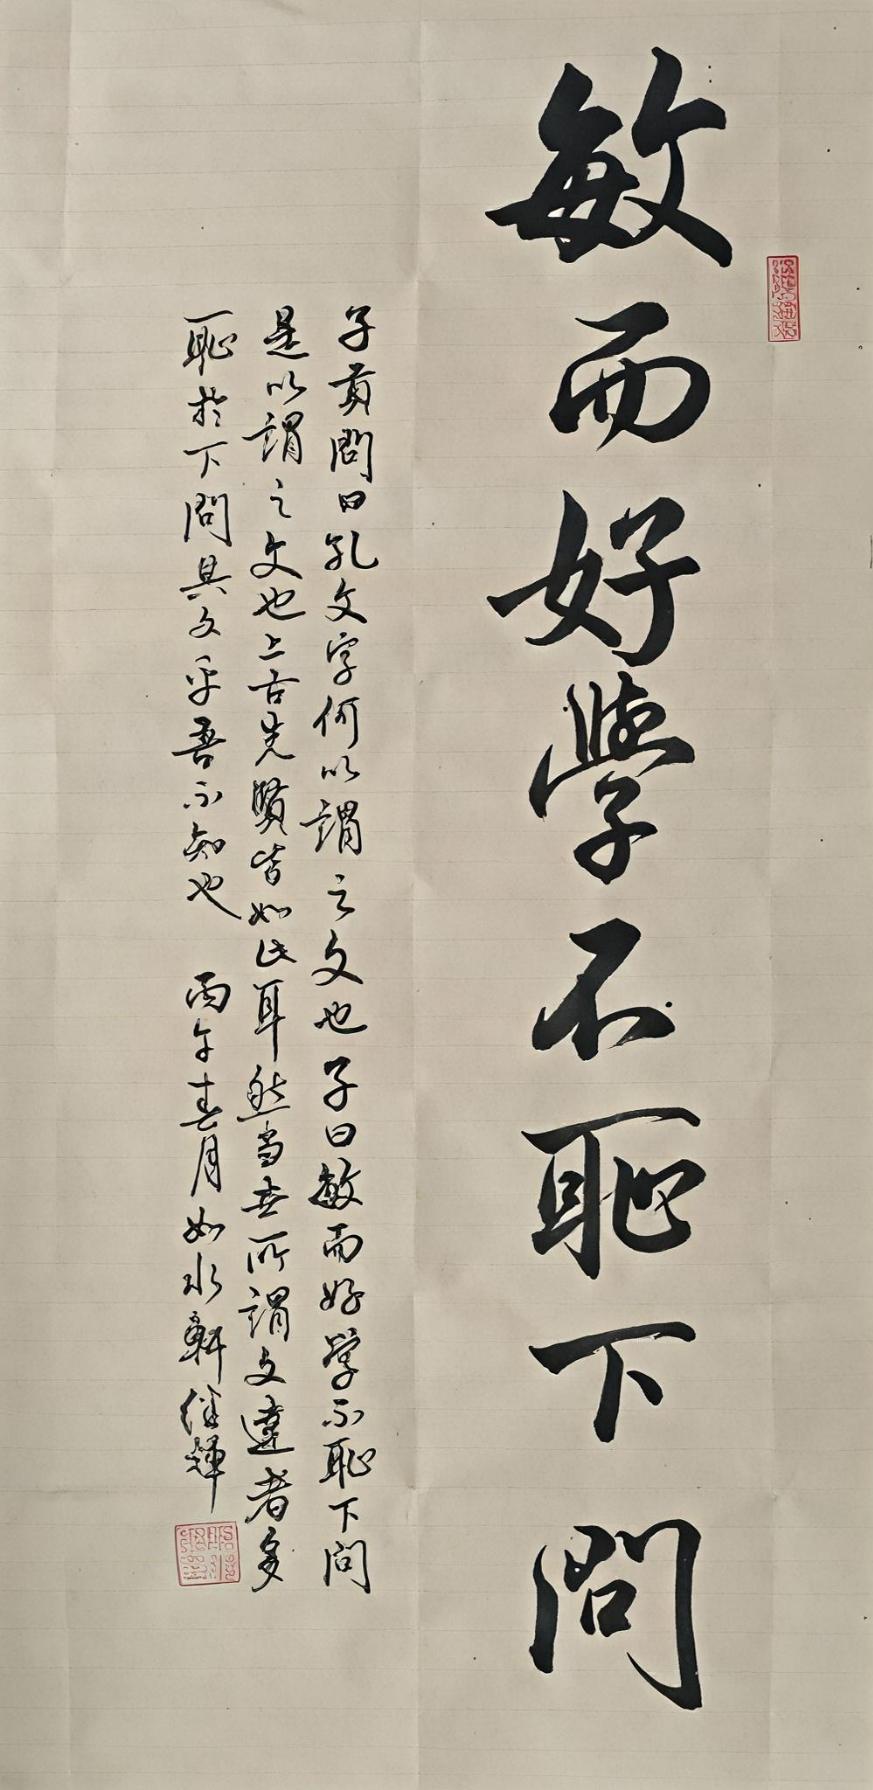 敏而好學不恥下問
子貢問曰孔文字何以謂之文也子曰敏而好學不恥下問
是以謂之文也上古先賢皆如此耳然當世所謂文達者多
恥於下問其文乎吾不知也 丙午春月如水軒繼輝